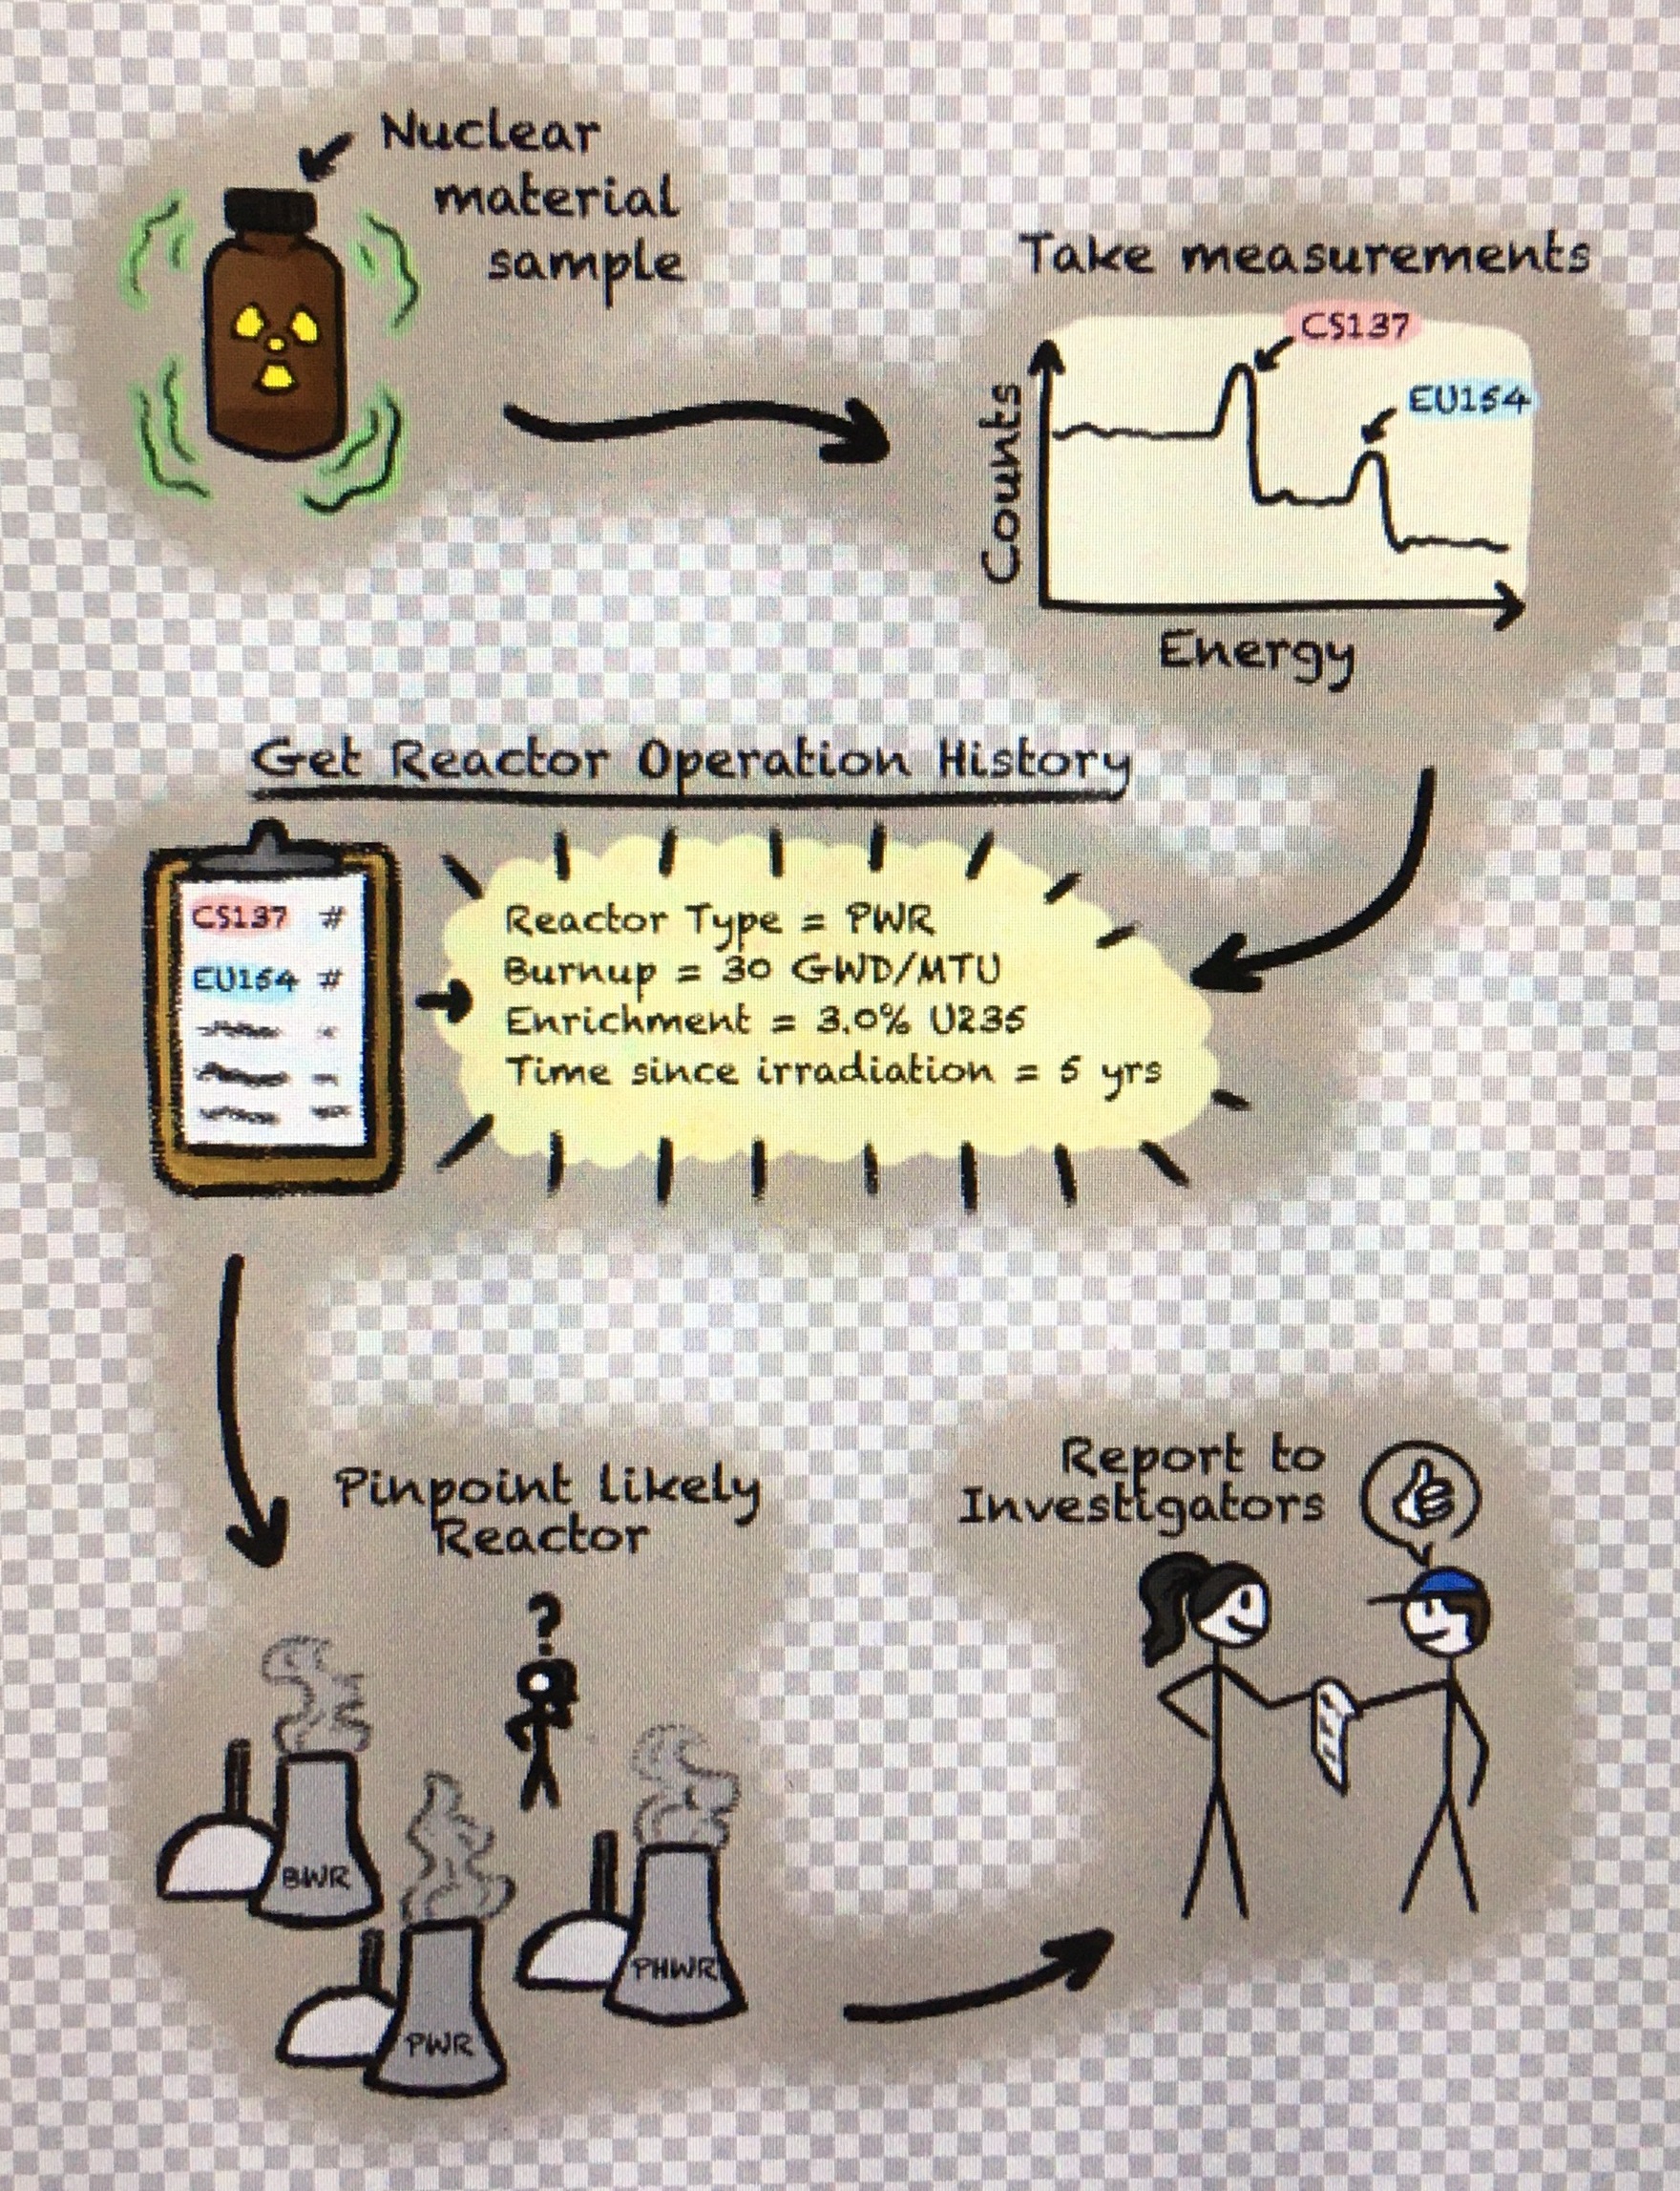 Nuclear
material
sample
Take measurements
CS137
EU154
Counts
Energy
Get Reactor Operation History
CS137 #
EU154 #
Reactor Type = PWR
Burnup = 30 GWD/MTU
Enrichment = 3.0% U235
Time since irradiation = 5 yrs
Pinpoint likely
Reactor
?
BWR
PWR
PHWR
Report to
Investigators